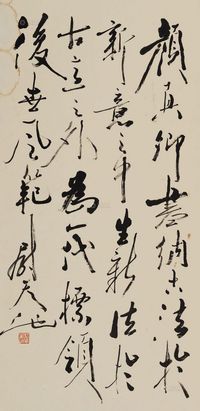 顏真卿書納古法於
新意之中生新法於
古意之外為一代標領
後世風範 尉天池